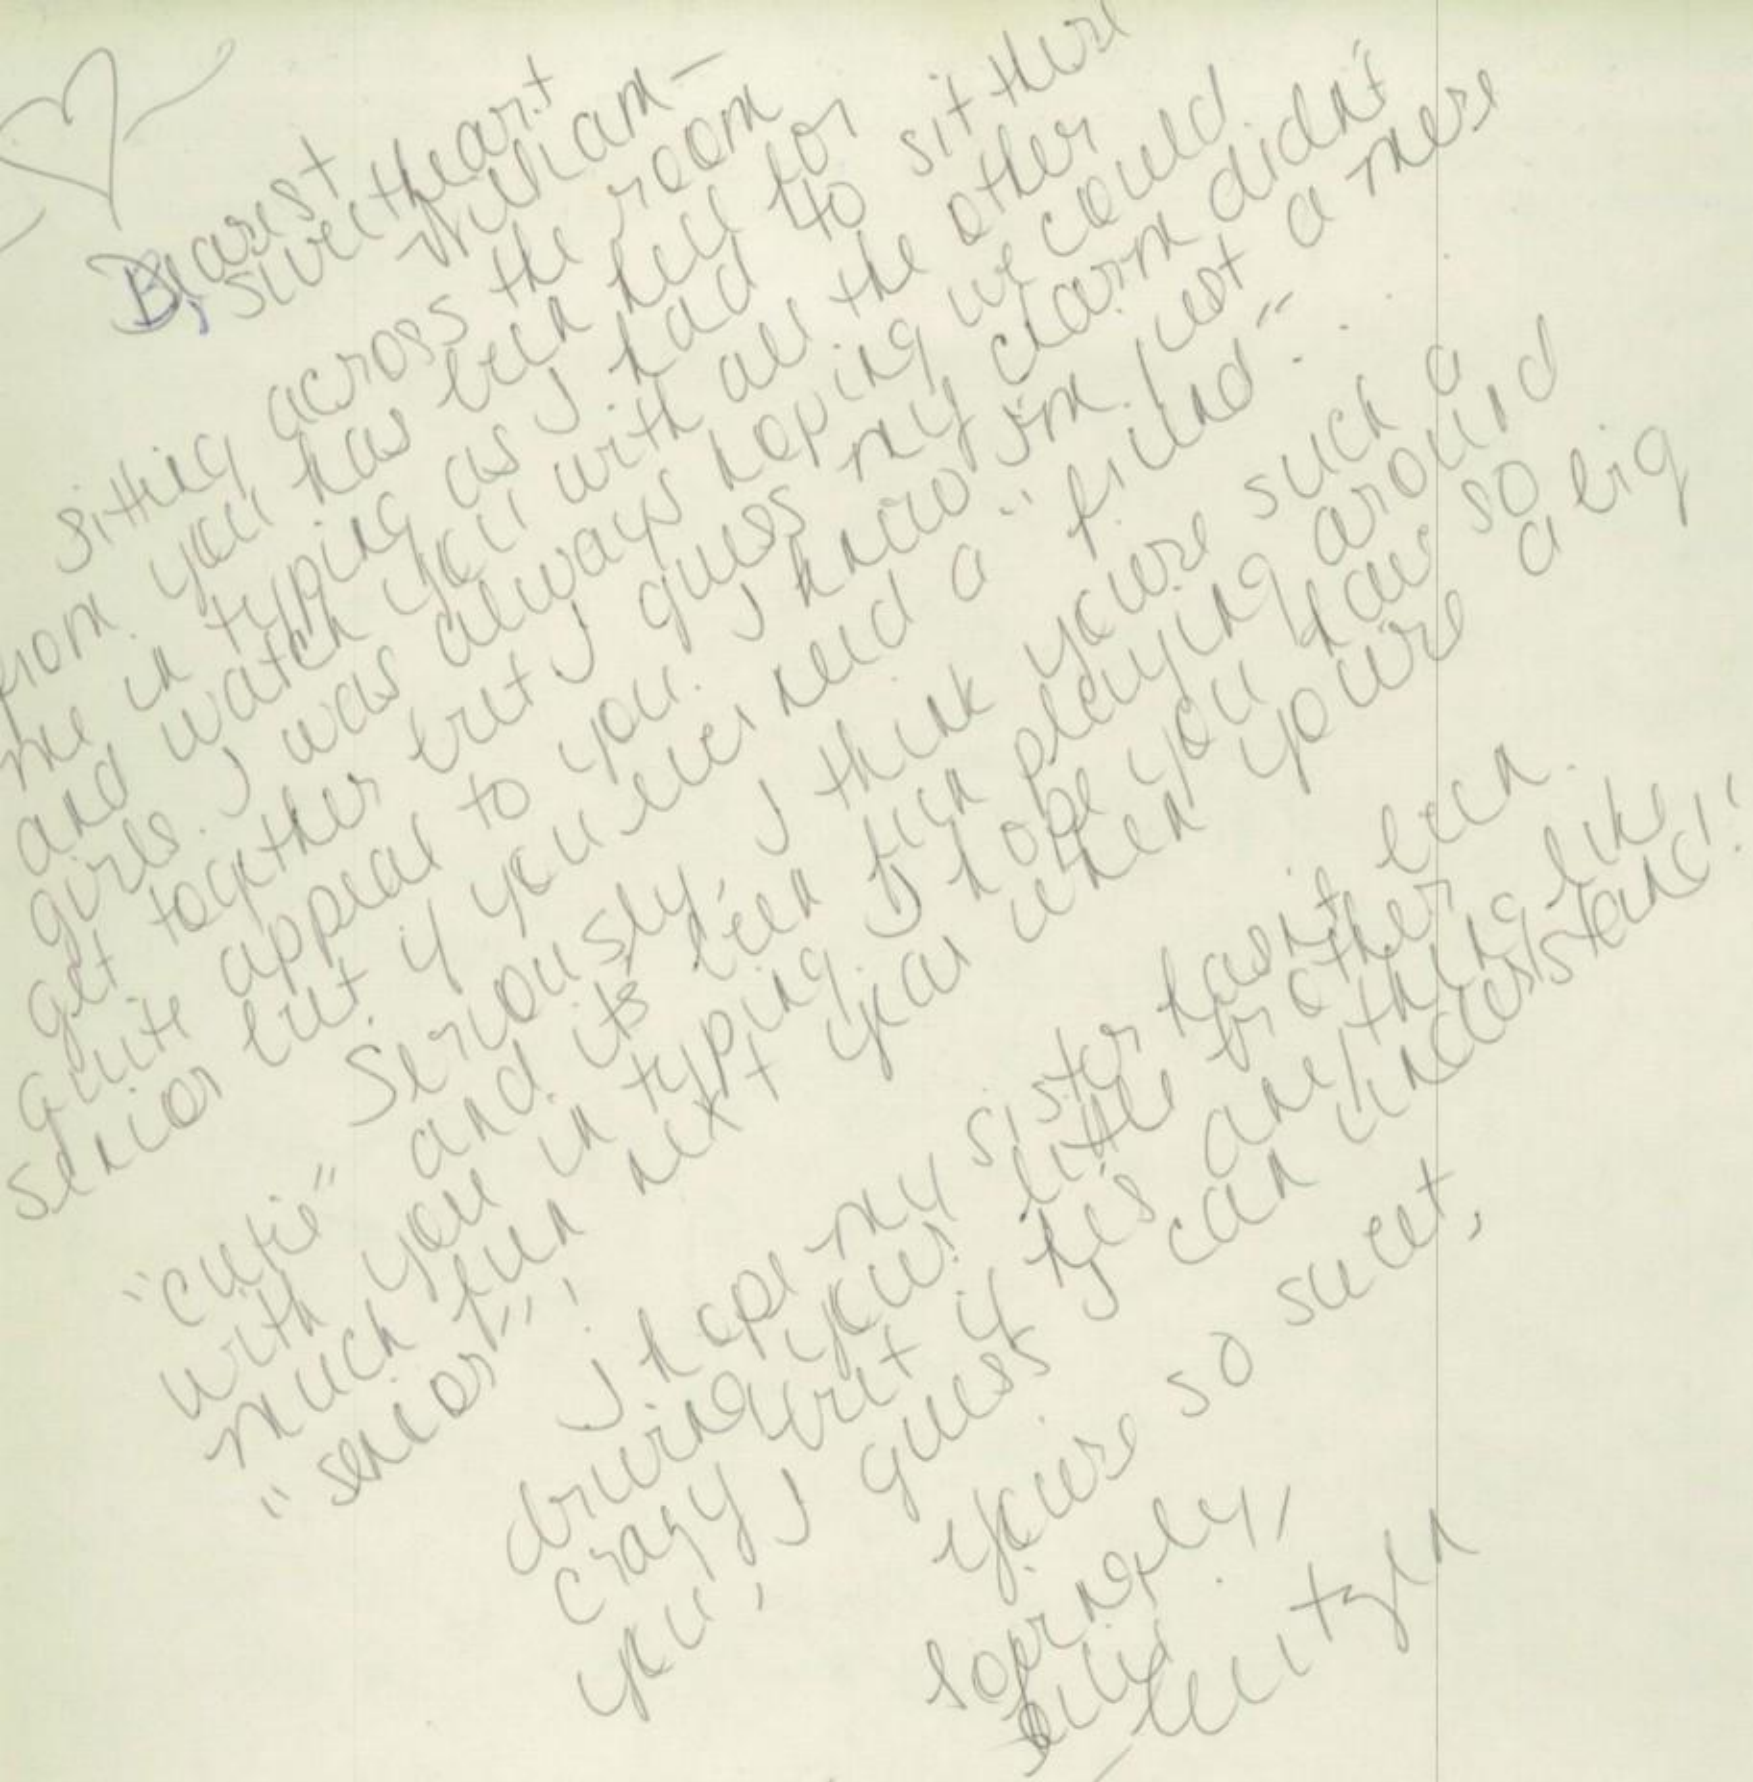 Dearest
sweetheart
William —
Sitting across the room
from you has been hell for
me in typing as I had to sit there
and watch you with all the other
girls. I was always hoping we could
get together but I guess my charm didn't
quite appeal to you. I know I'm just a mere
senior but if you ever need a "friend" ..
Seriously, I think youre such a
"cutie" and its been fun playing around
with you in typing. I hope you have so
much fun next year when youre a big
"senior"!
I hope my sister hasn't been
driving your little brother
crazy but if he's anything like
you, I guess I can understand!
youre so sweet,